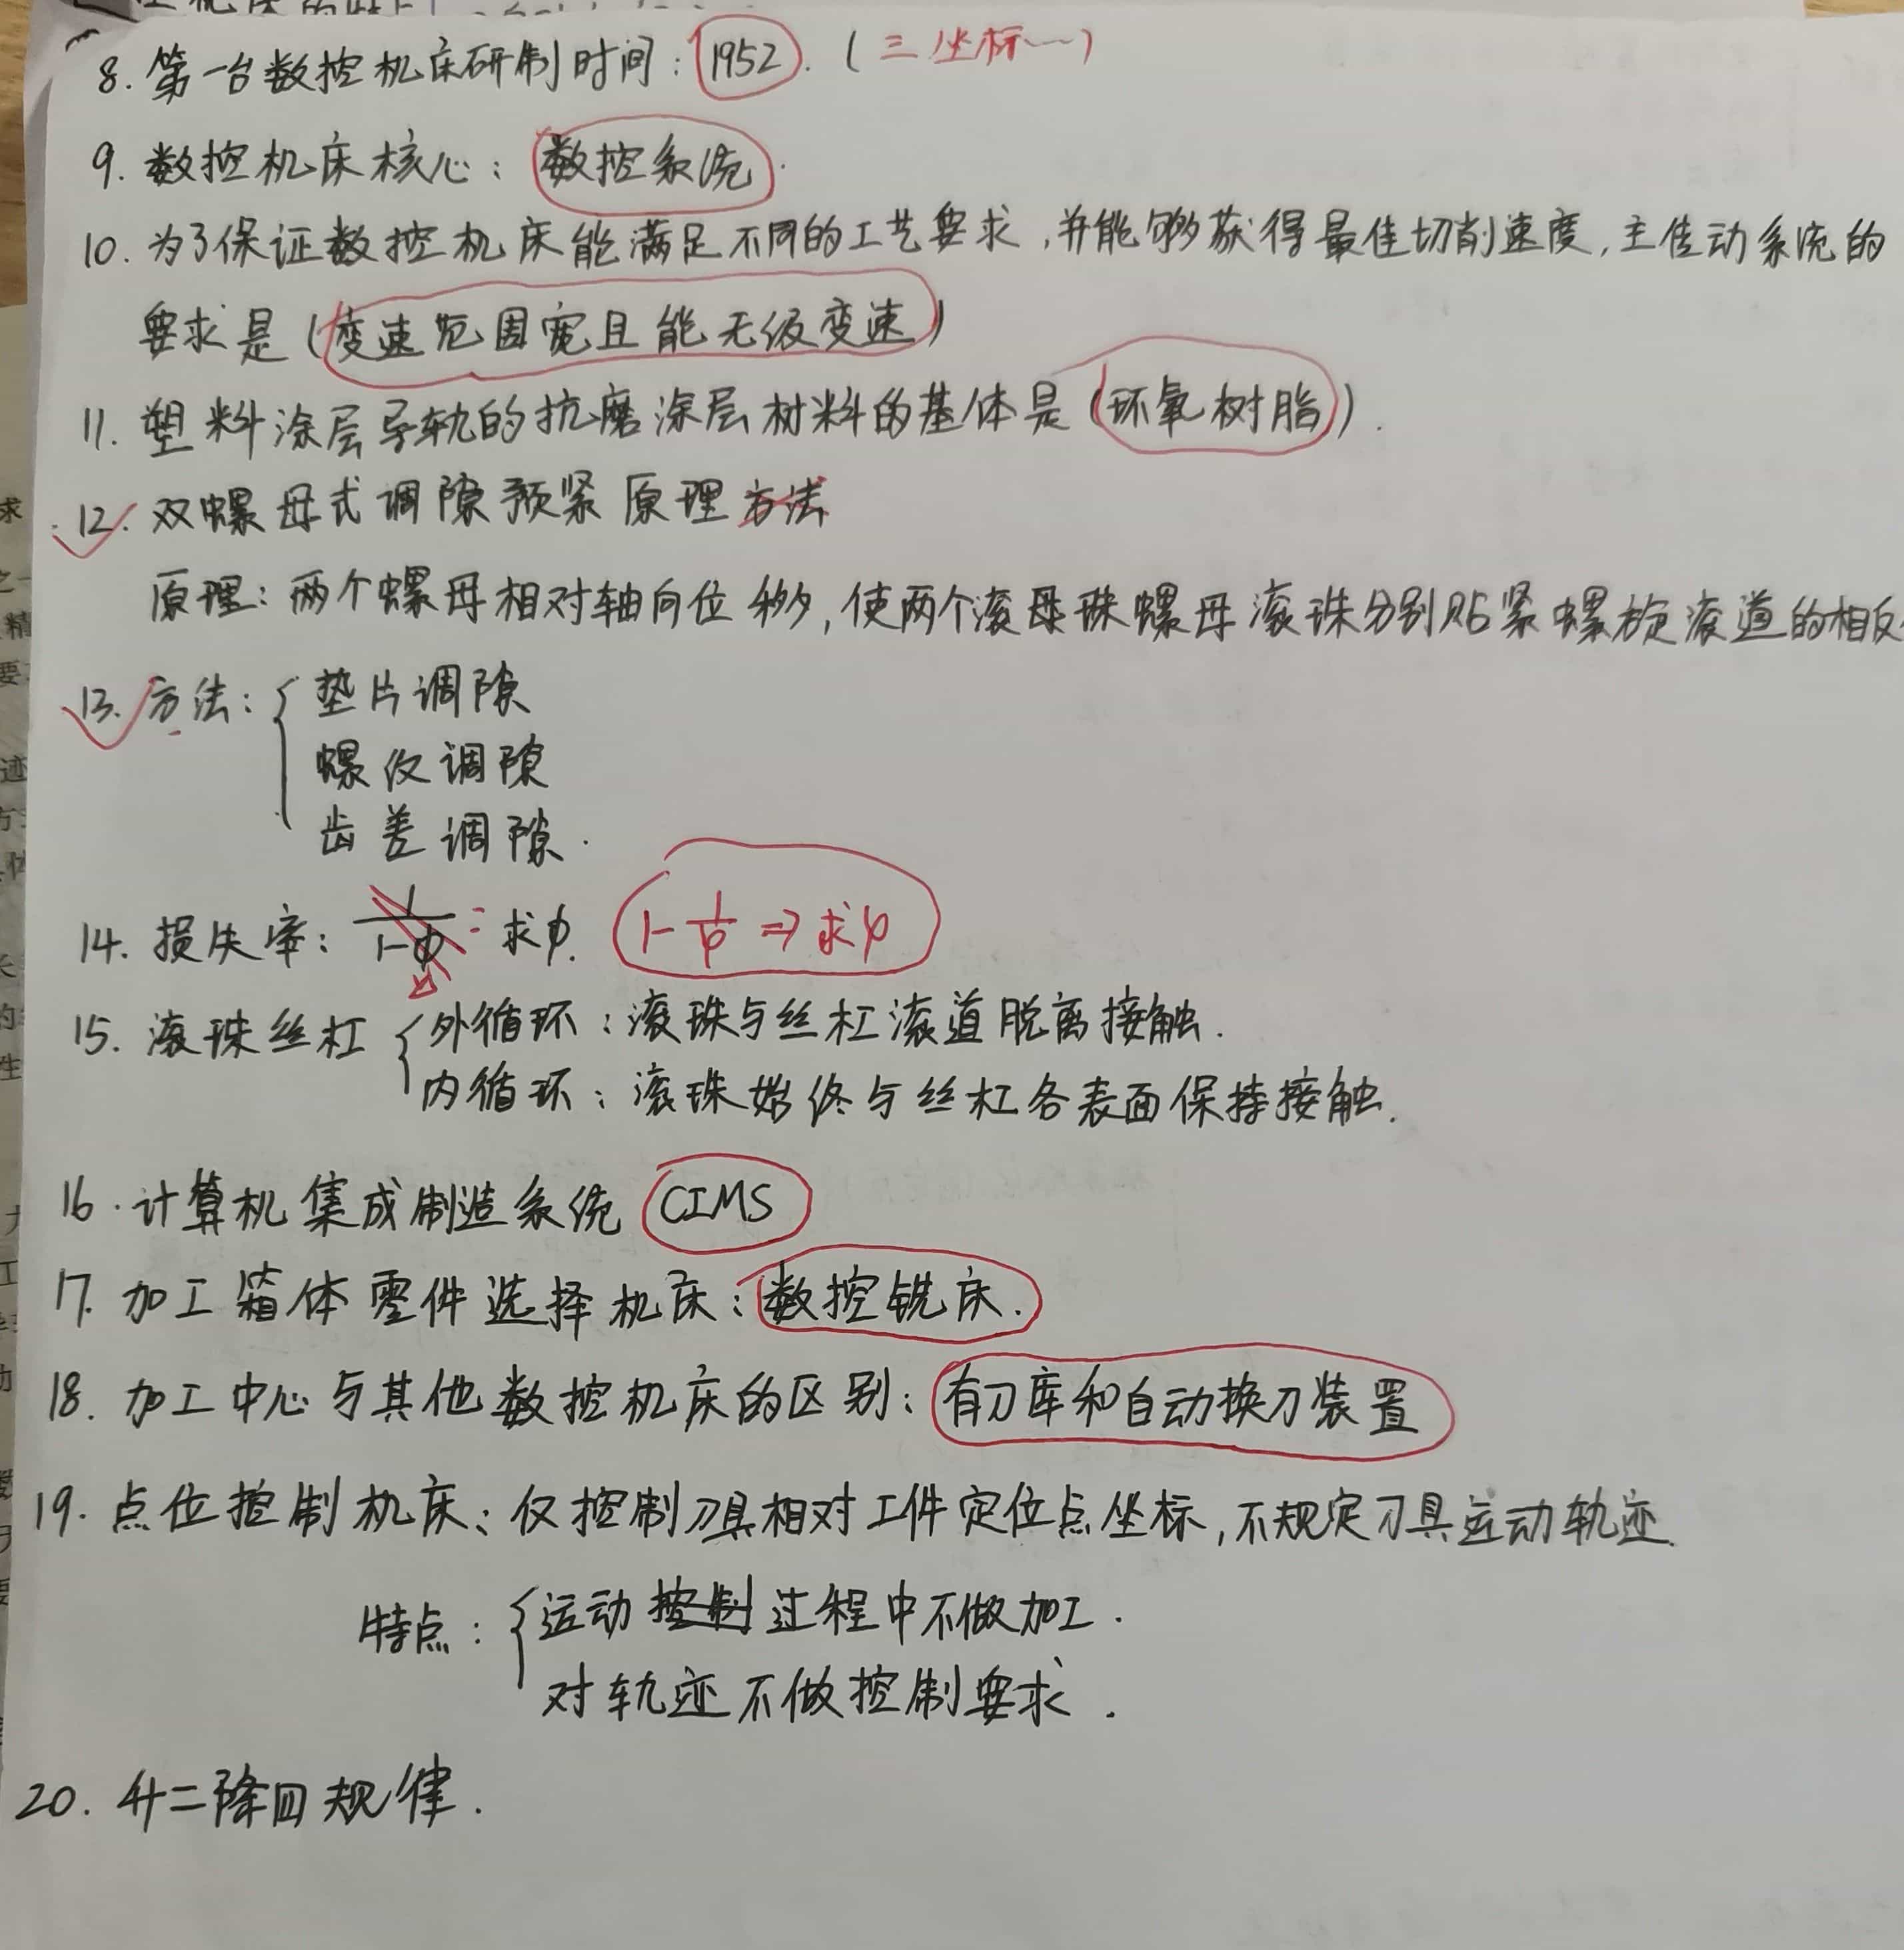 8. 第一台数控机床研制时间：1952.（三坐标…）
9. 数控机床核心：数控系统.
10. 为了保证数控机床能满足不同的工艺要求,并能够获得最佳切削速度,主传动系统的
要求是(变速范围宽且能无级变速)
11. 塑料涂层导轨的抗磨涂层材料的基体是(环氧树脂).
12. 双螺母式调隙预紧原理方法
原理：两个螺母相对轴向位移,使两个滚珠螺母滚珠分别贴紧螺旋滚道的相反
13. 方法：{垫片调隙
螺纹调隙
齿差调隙.
14. 损失率：1/(1-φ) = 求φ. 1-1/φ ⇒ 求φ
15. 滚珠丝杠{外循环：滚珠与丝杠滚道脱离接触.
内循环：滚珠始终与丝杠各表面保持接触.
16. 计算机集成制造系统 CIMS
17. 加工箱体零件选择机床：数控铣床.
18. 加工中心与其他数控机床的区别：有刀库和自动换刀装置
19. 点位控制机床：仅控制刀具相对工件定位点坐标,不规定刀具运动轨迹.
特点：{运动控制过程中不做加工.
对轨迹不做控制要求.
20. 升二降四规律.